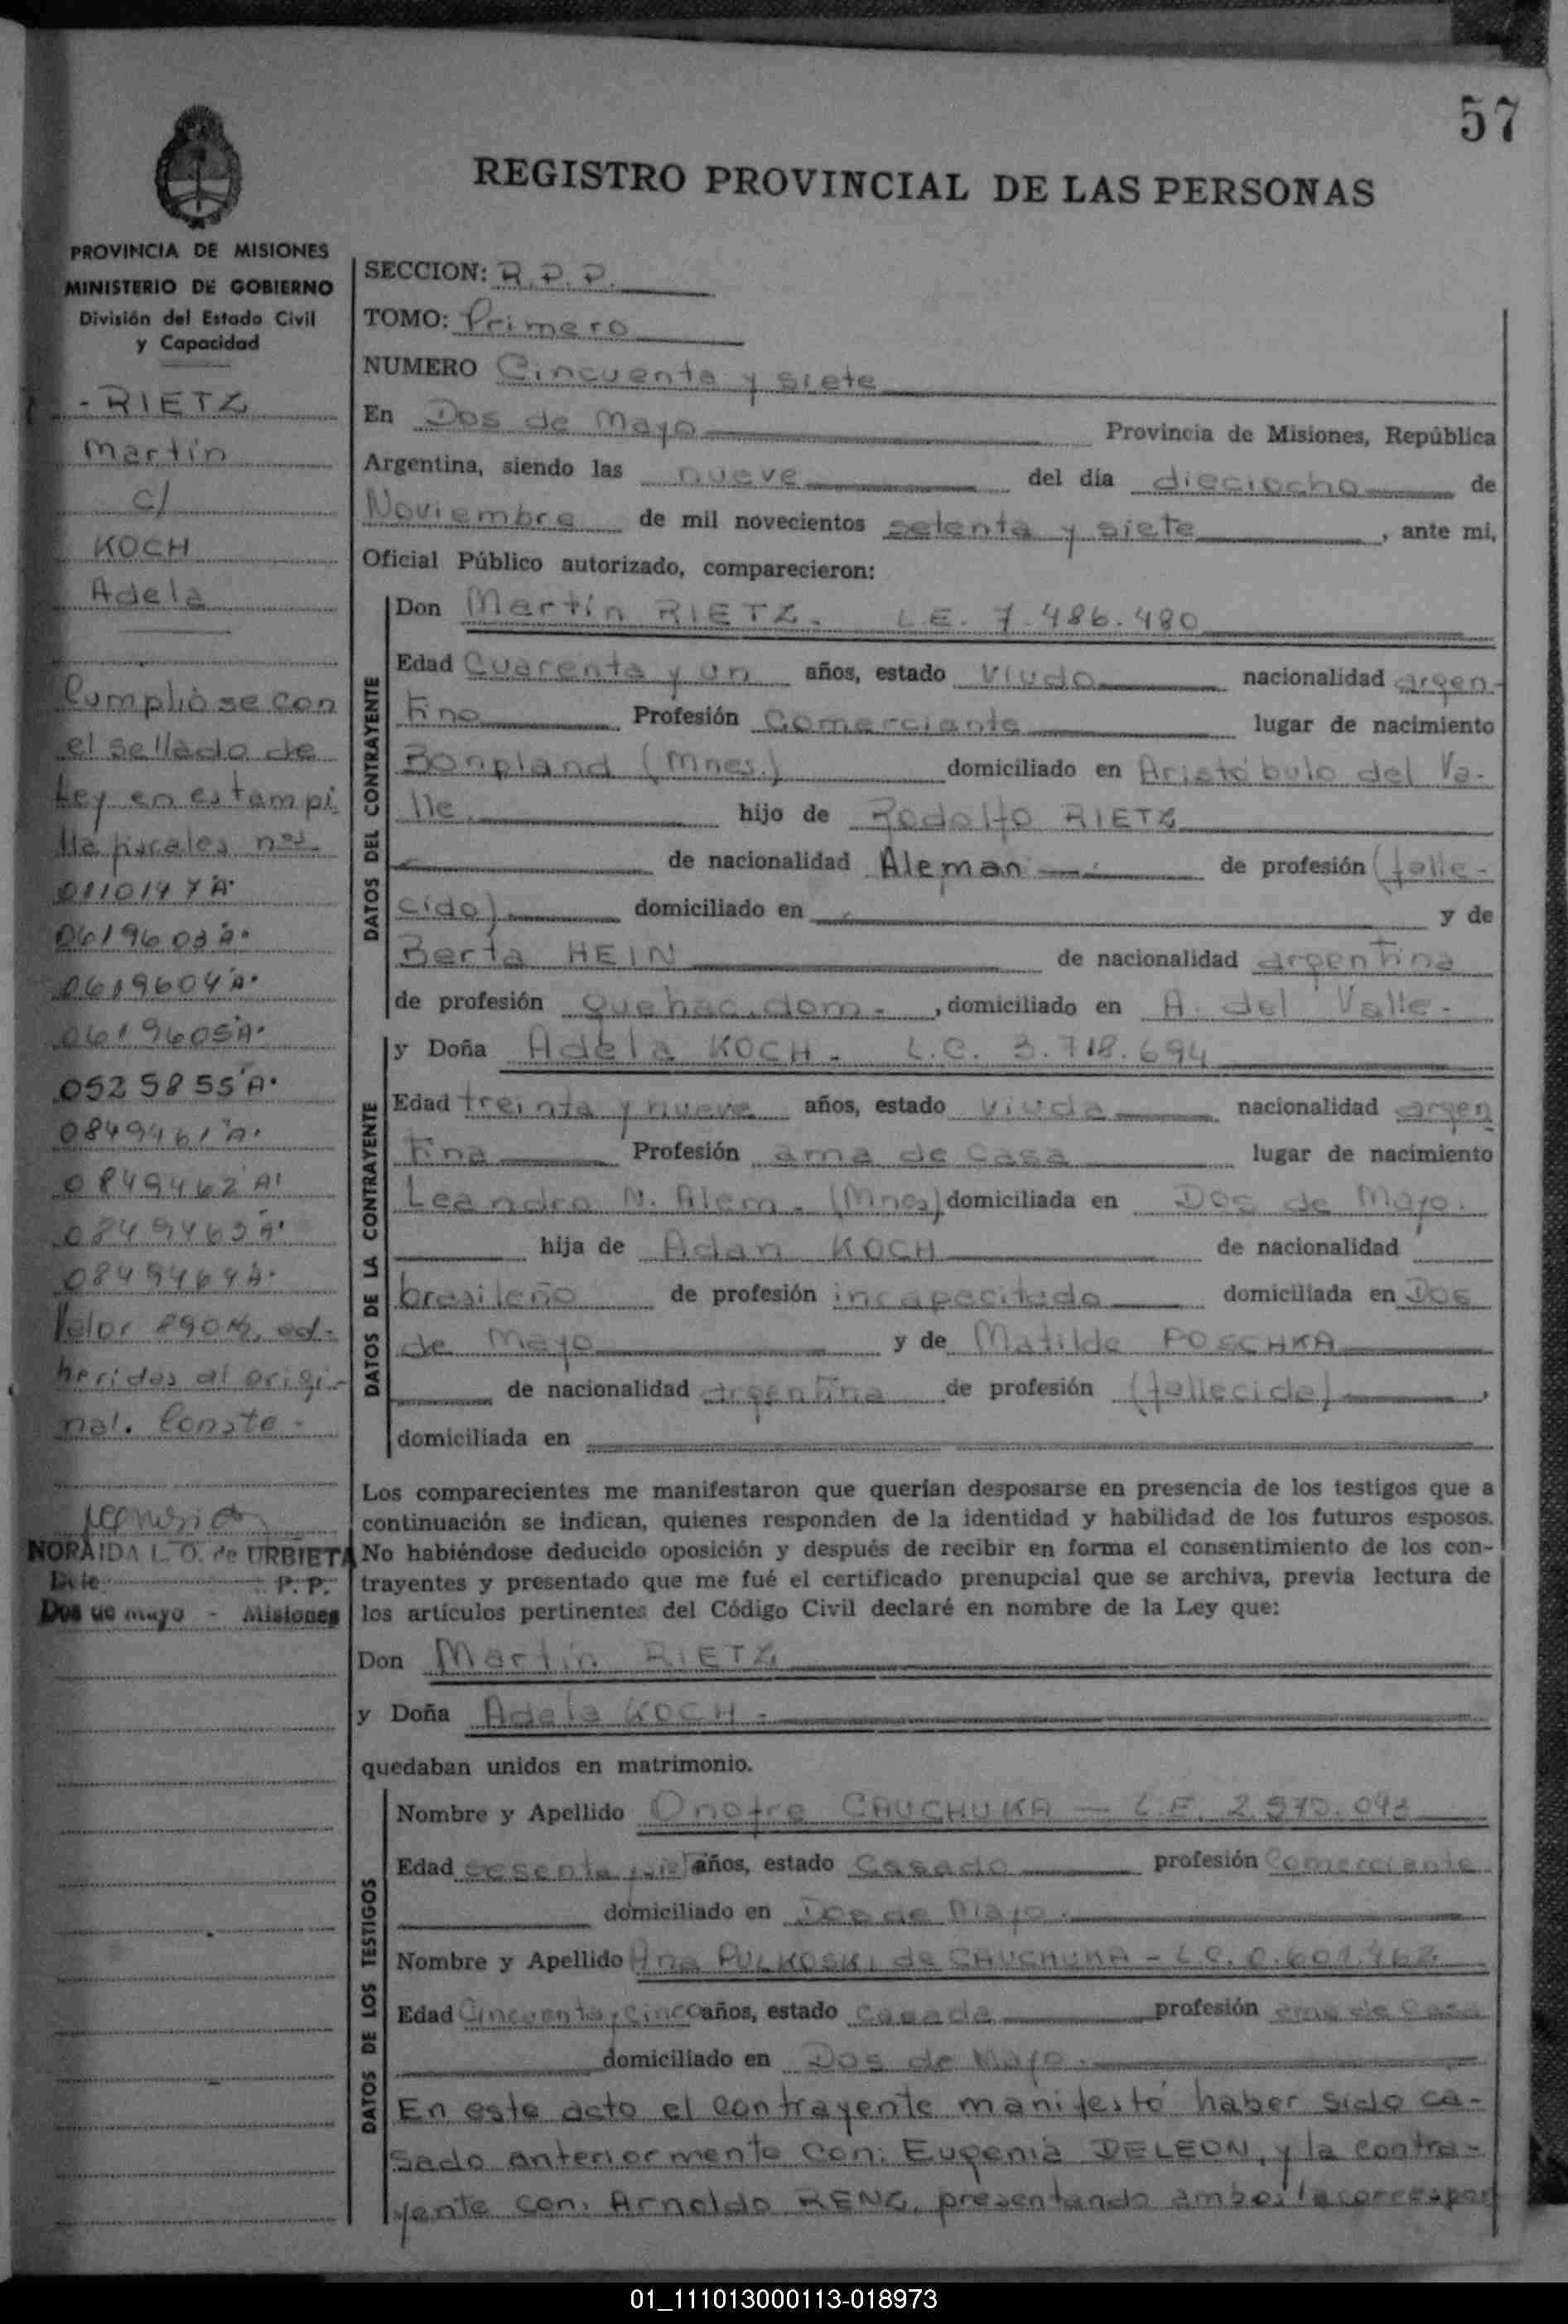 57
REGISTRO PROVINCIAL DE LAS PERSONAS
PROVINCIA DE MISIONES
MINISTERIO DE GOBIERNO
División del Estado Civil
y Capacidad
- RIETZ
Martín
c/
KOCH
Adela
Cumplióse con
el sellado de
Ley en estampi
lla fiscales nos
0110147 A.
0619603 A.
0619604 A.
0619605 A.
0525855 A.
0849461 A.
0849462 A.
0849463 A.
0849464 A.
Valor ad-
heridos al origi-
nal. Conste.
NORAIDA L. O. de URBIETA
P. P.
Dos de mayo - Misiones
SECCION: R.P.P.
TOMO: Primero
NUMERO Cincuenta y siete
En Dos de Mayo Provincia de Misiones, República
Argentina, siendo las nueve del día dieciocho de
Noviembre de mil novecientos setenta y siete, ante mi,
Oficial Público autorizado, comparecieron:
DATOS DEL CONTRAYENTE
Don Martín RIETZ. L.E. 7.486.480
Edad Cuarenta y un años, estado viudo nacionalidad argen-
tino Profesión Comerciante lugar de nacimiento
Bonpland (Mnes.) domiciliado en Aristóbulo del Va-
lle. hijo de Rodolfo RIETZ
de nacionalidad Aleman de profesión (falle-
cido) domiciliado en y de
Berta HEIN de nacionalidad argentina
de profesión quehac. dom. , domiciliado en A. del Valle.
DATOS DE LA CONTRAYENTE
y Doña Adela KOCH. L.C. 3.718.694
Edad treinta y nueve años, estado viuda nacionalidad argen
tina Profesión ama de casa lugar de nacimiento
Leandro N. Alem. (Mnes) domiciliada en Dos de Mayo.
hija de Adan KOCH de nacionalidad
brasileño de profesión incapacitado domiciliada en Dos
de Mayo y de Matilde POSCHKA
de nacionalidad argentina de profesión (fallecida),
domiciliada en
Los comparecientes me manifestaron que querían desposarse en presencia de los testigos que a
continuación se indican, quienes responden de la identidad y habilidad de los futuros esposos.
No habiéndose deducido oposición y después de recibir en forma el consentimiento de los con-
trayentes y presentado que me fué el certificado prenupcial que se archiva, previa lectura de
los artículos pertinentes del Código Civil declaré en nombre de la Ley que:
Don Martín RIETZ
y Doña Adela KOCH.
quedaban unidos en matrimonio.
DATOS DE LOS TESTIGOS
Nombre y Apellido Onofre CAUCHUKA — L.E. 2.570.043
Edad sesenta y años, estado Casado profesión Comerciante
domiciliado en Dos de Mayo.
Nombre y Apellido Ana PULKOSKI de CAUCHUKA - L.C. 0.601.462
Edad Cincuenta y cinco años, estado casada profesión ama de casa
domiciliado en Dos de Mayo.
En este acto el contrayente manifestó haber sido ca-
sado anteriormente con: Eugenia DELEON, y la contra-
yente con: Arnoldo RENG, presentando ambos la correspon
01_111013000113-018973